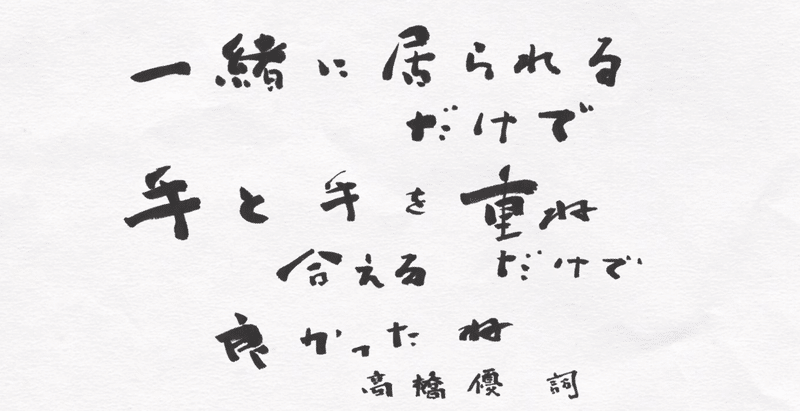 一緒に居られる
だけで
手と手を重ね
合えるだけで
良かったね
高橋優 詞